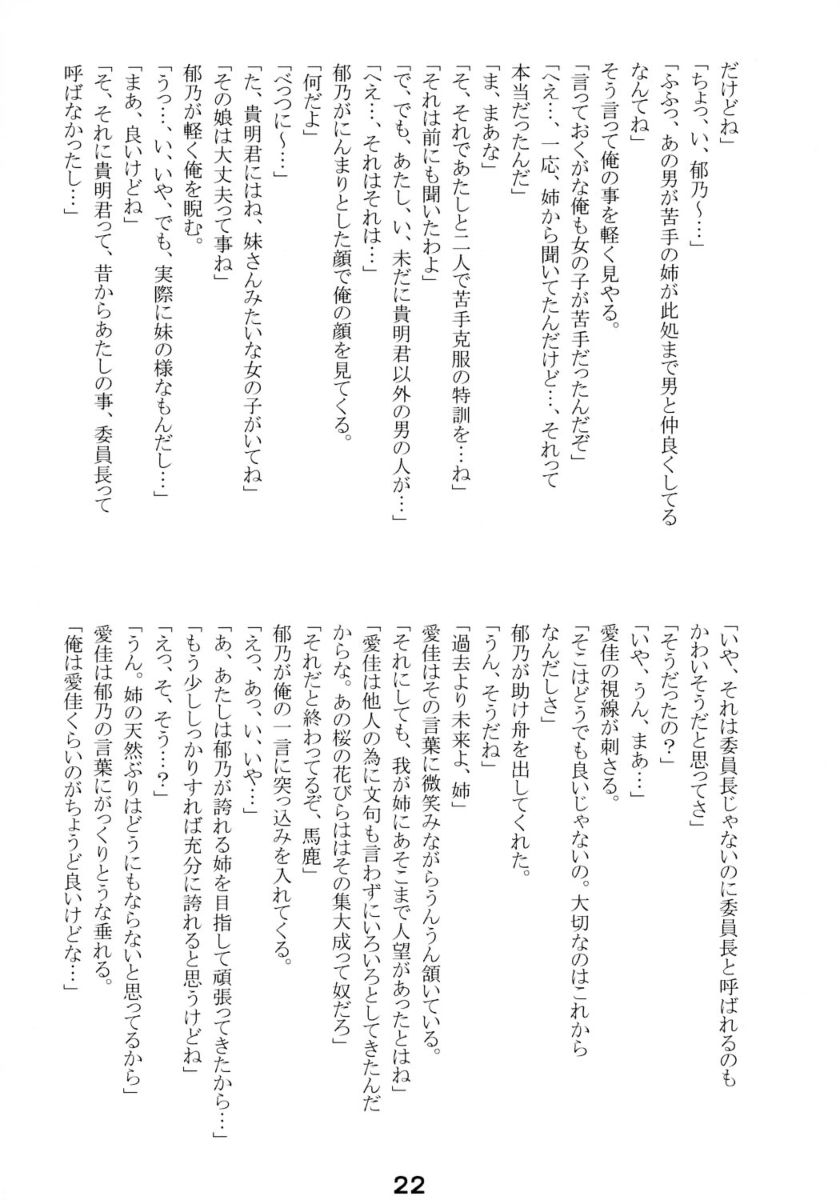 だけどね」
「ちょっ、い、郁乃～…」
「ふふっ、あの男が苦手の姉が此処まで男と仲良くしてる
なんてね」
そう言って俺の事を軽く見やる。
「言っておくがな俺も女の子が苦手だったんだぞ」
「へえ…、一応、姉から聞いてたんだけど…、それって
本当だったんだ」
「ま、まあな」
「そ、それであたしと二人で苦手克服の特訓を…ね」
「それは前にも聞いたわよ」
「で、でも、あたし、い、未だに貴明君以外の男の人が…」
「へえ…、それはそれは…」
郁乃がにんまりとした顔で俺の顔を見てくる。
「何だよ」
「べっつに～…」
「た、貴明君にはね、妹さんみたいな女の子がいてね」
「その娘は大丈夫って事ね」
郁乃が軽く俺を睨む。
「うっ…、い、いや、でも、実際に妹の様なもんだし…」
「まあ、良いけどね」
「そ、それに貴明君って、昔からあたしの事、委員長って
呼ばなかったし…」
「いや、それは委員長じゃないのに委員長と呼ばれるのも
かわいそうだと思ってさ」
「そうだったの？」
「いや、うん、まあ…」
愛佳の視線が刺さる。
「そこはどうでも良いじゃないの。大切なのはこれから
なんだしさ」
郁乃が助け舟を出してくれた。
「うん、そうだね」
「過去より未来よ、姉」
愛佳はその言葉に微笑みながらうんうん頷いている。
「それにしても、我が姉にあそこまで人望があったとはね」
「愛佳は他人の為に文句も言わずにいろいろとしてきたんだ
からな。あの桜の花びらははその集大成って奴だろ」
「それだと終わってるぞ、馬鹿」
郁乃が俺の一言に突っ込みを入れてくる。
「えっ、あっ、い、いや…」
「あ、あたしは郁乃が誇れる姉を目指して頑張ってきたから…」
「もう少ししっかりすれば充分に誇れると思うけどね」
「えっ、そ、そう…？」
「うん。姉の天然ぶりはどうにもならないと思ってるから」
愛佳は郁乃の言葉にがっくりとうな垂れる。
「俺は愛佳くらいのがちょうど良いけどな…」
22